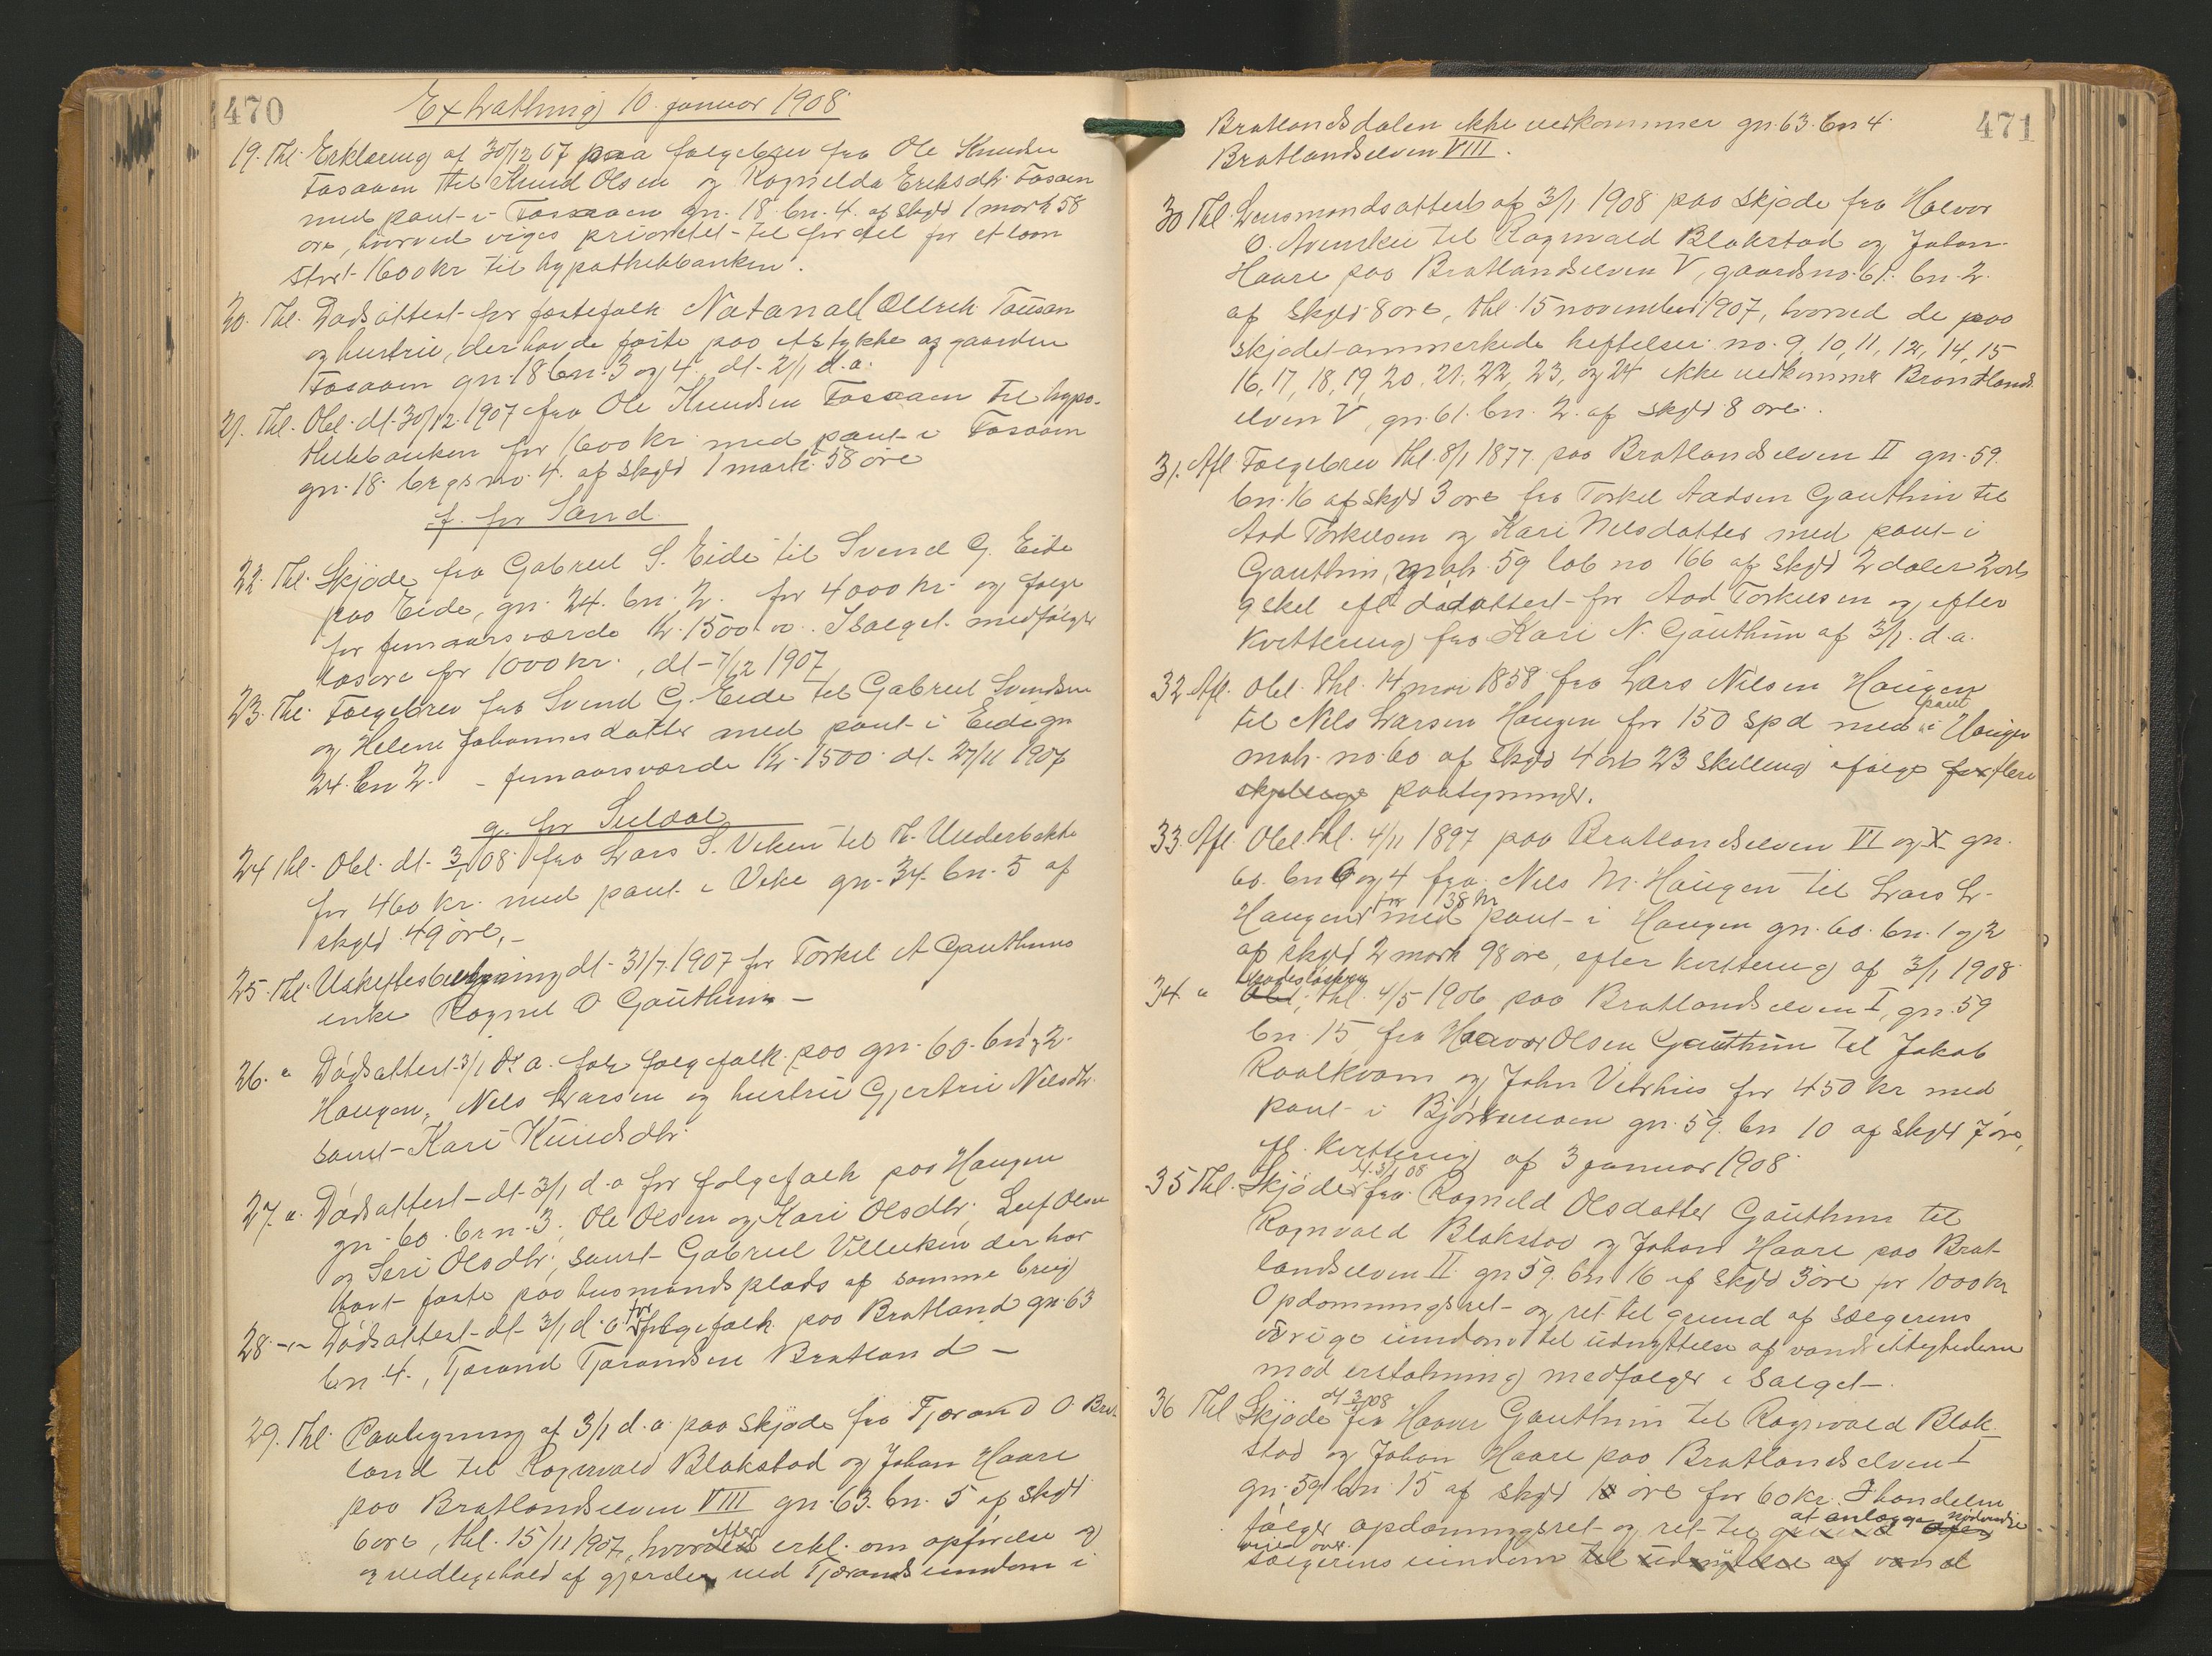 470
Extrathing 10 januar 1908
19. Thl. Erklæring af 30/12 07 paa følgebrev fra Ole Knudsen
Fosaaen til Knud Olsen og Ragnilda Eriksdtr. Fosaaen
med pant i Fosaaen gn. 18. bn. 4. af skyld 1 mark 58
øre, hvorved viges prioritet til fordel for et laan
stort 1600 kr til hypothekbanken.
20. Thl. Dødsattest for føstefolk Natanael Ellrik
og hustru, der havde føste paa et stykke af gaarden
Fosaaen gn. 18 bn. 3 og 4. dt. 2/1 d.a.
21. Thl. Obl. dt. 30/12. 1907 fra Ole Knudsen Fosaaen til hypo-
thekbanken for 1600 kr med pant i Fosaaen
gn. 18. brgsno. 4. af skyld 1 mark 58 øre
f. for Sand.
22. Thl. Skjøde fra Gabriel S. Eide til Svend G. Eide
paa Eide, gn. 24. bn. 2. for 4000 kr. og følge
for femaarsværde kr. 1500.00. I salget medfølger
løsøre for 1000 kr., dt. 7/12 1907
23. Thl. Følgebrev fra Svend G. Eide til Gabriel Svendsen
og Helene Johannesdatter med pant i Eide gn
24. bn 2. - femaarsværde kr. 1500. dt. 27/11 1907
g. for Suldal
24 Thl. Obl. dt. 3/1 08. fra Lars S. Veken til Th. Underbakke
for 460 kr. med pant i Veke gn. 34. bn. 5 af
skyld 49 øre. -
25. Thl. Uskiftesbevilgning dt. 31/7. 1907 for Torkel A Gauthuns
enke Ragnel O Gauthun -
26. " Dødsattest 3/1 d. a. for følgefolk paa gn. 60. bn 1 og 2.
Haugen, Nels Larsen og hustru Gjertrü Nelsdtr.
samt Kari Knudsdtr.
27. " Dødsattest dt. 3/1 d. a for følgefolk paa Haugen
gn. 60. brn. 3, Ole Olsen og Kari Olsdtr, Leif Olsen
og Siri Olsdtr, samt Gabriel Villeiken der har
havt føste paa husmandsplads af samme brug
28. -"- Dødsattest dt. 3/1 d. a. for følgefolk paa Bratland gn. 63
bn. 4., Tjerand Tjerandsen Bratland -
29. Thl. Paategning af 3/1 d. a paa skjøde fra Tjerand O. Brat-
land til Ragnvald Blakstad og Johan Haare
paa Bratlandselven VIII gn. 63. bn. 5 af skyld
6 øre, thl. 15/11 1907, hvorefter erkl. om opførelse og
og vedligehold af gjerder ved Tjerands eiendom i
471
Bratlandsdalen ikke vedkommer gn. 63. bn 4.
Bratlandselven VIII.
30 Thl. Lensmandsattest af 3/1 1908 paa skjøde fra Halvor
O. til Ragnvald Blakstad og Johan
Haare paa Bratlandselven V, gaardsno. 61. bn. 2.
af skyld 8 øre, thl. 15 november 1907, hvorved de paa
skjødet anmerkede heftelser no. 9, 10, 11, 12, 14, 15
16, 17, 18, 19, 20, 21, 22, 23, og 24 ikke vedkommer Bratlands-
elven V, gn. 61. bn. 2. af skyld 8 øre.
31. Afl Følgebrev thl. 8/1 1877. paa Bratlandselven II gn. 59.
bn. 16 af skyld 3 øre fra Torkel Aadsen Gauthun til
Aad Torkelsen og Kari Nelsdatter med pant i
Gauthun, mah. 59 løb no 166 af skyld 2 daler 2 ort
9 skil efl. dødattest for Aad Torkelsen og efter
kvittering fra Kari N. Gauthun af 3/1. d. a.
32. Afl. Obl. thl. 14 mai 1858 fra Lars Nilsen Haugen
til Nels Larsen Haugen for 150 spd med pant i Haugen
mah. no. 60 af skyld 4 ort 23 skilling ifølge flere
paategninger.
33. Afl. Obl. thl. 4/11 1897 paa Bratlandselven VI og X gn.
60. bn 6 og 4 fra Nels M. Haugen til Lars L.
Haugen for 138 kr med pant i Haugen gn. 60. bn. 1 og 2
af skyld 2 mark 98 øre, efter kvittering af 3/1 1908
34. " Skadesløsbrev thl. 4/5 1906 paa Bratlandselven I, gn. 59
bn. 15 fra Haavar Olsen Gauthun til Jakob
Raalkvam og John Vetrhus for 450 kr med
pant i gn. 59. bn 10 af skyld 7 øre,
efl. kvittering af 3 januar 1908.
35 Thl. Skjøde dt. 3/1 08 fra Ragnild Olsdatter Gauthun til
Ragnvald Blakstad og Johan Haare paa Brat-
landselven II gn 59. bn 16 af skyld 3 øre for 1000 kr
Opdæmningsret og ret til grund af sælgerens
øvrige eiendom til udnyttelse af vandrettighederne
mod erstatning medfølger i salget.
36 Thl Skjøde dt 3/1 08 fra Haavar Gauthun til Ragnvald Blak-
stad og Johan Haare paa Bratlandselven I
gn. 59 bn. 15 af skyld 1 øre for 60 kr. I handelen
følger opdæmningsret og ret til at anlægge nødvendige
veie over
sælgerens eiendom til udnyttelse af vand